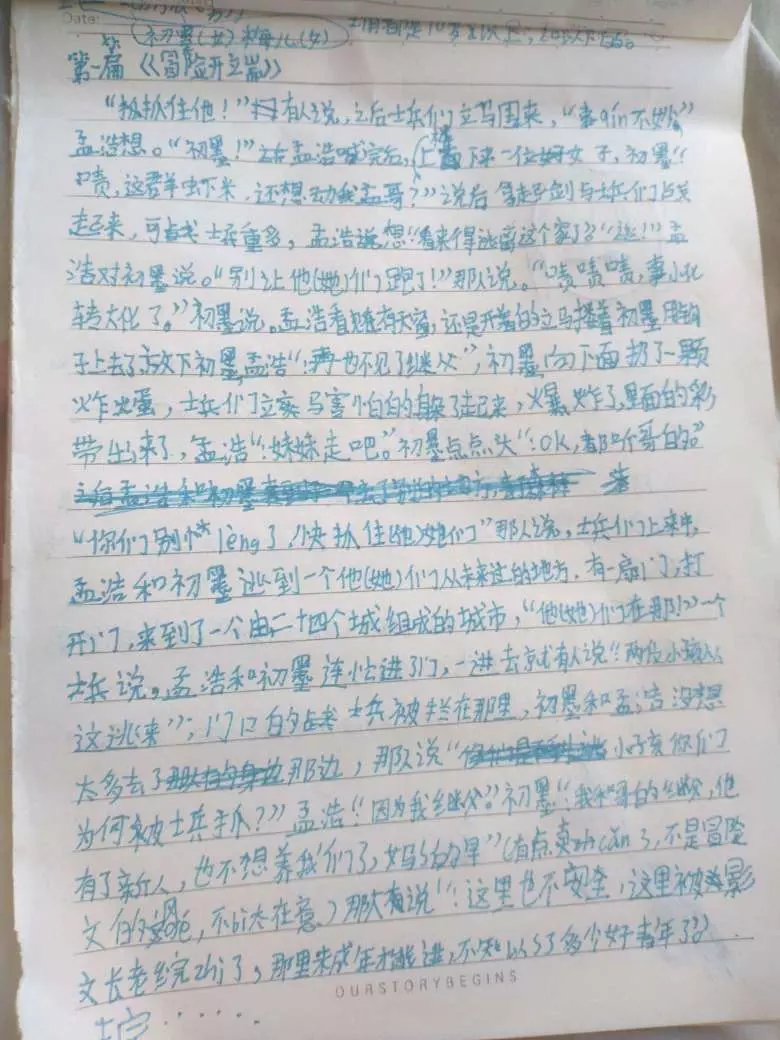 Date:
初墨(女) 梅儿(女)
第一篇《冒险开立端》
“抓住他！”有人说，之后士兵们立马围来，“事qin不妙”
孟浩想。“初墨！”在孟浩喊完后，上面下来一位女子，初墨“
啧，这群虫下米，还想动我孟哥？”说后拿起剑与士兵们占戈
起来，可占戈士兵重多，孟浩想“看来得逃离这个家了”“逃！”孟
浩对初墨说。“别让他(她)们跑了！”那人说。“啧啧啧，事小化
转大化了。”初墨说。孟浩看有天窗，还是开着的立马搂着初墨用钩
子上去了放下初墨，孟浩“再也不见了继父”，初墨向下面扔了一颗
火乍出蛋，士兵们立马害怕的躲了起来，爆炸了，里面的彩
带出来了，孟浩“妹妹走吧。”初墨点点头“OK，都听哥的。”
“你们别 lèng了，快抓住他(她)们”那人说，士兵们上来中，
孟浩和初墨逃到一个他(她)们从未来过的地方，有一扇门，打
开门，来到了一个由二十四个城组成的城市，“他(她)们在那！”一个
士兵说，孟浩和初墨连忙进了门，一进去京尤有人说“两位小孩
这逃来”；门口的占戈士兵被拦在那里，初墨和孟浩没想
太多去了那边，那人说“小孩你们
为何被士兵抓？”孟浩“因为我继父。”初墨“我和哥的继父，他
有了新人，也不想养我们了，妈妈早”(有点真can了，不是冒险
文的风，不必太在意。)那人说“这里也不安全，这里被影
文长老统zhi了，那里未成年能进，不知了多少好青年了？”
OURSTORYBEGINS